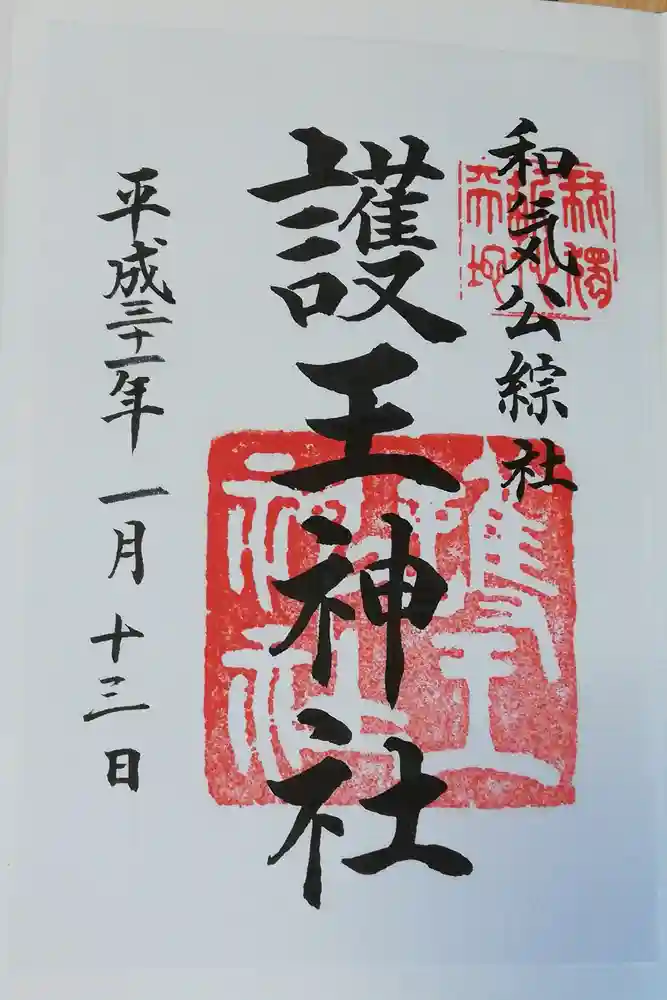 和気公綜社
護王神社
平成三十一年一月十三日
護王神社